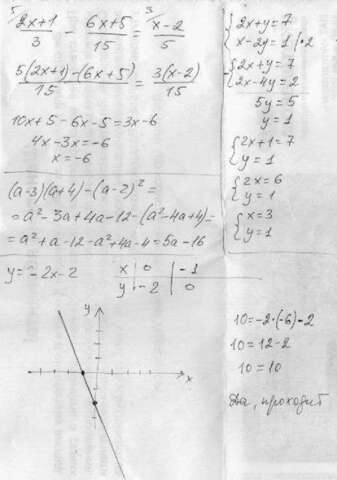 5
2x+1/3 - 6x+5/15 = 3 x-2/5
5(2x+1)-(6x+5)/15 = 3(x-2)/15
10x+5-6x-5=3x-6
4x-3x=-6
x=-6
(a-3)(a+4)-(a-2)²=
=a²-3a+4a-12-(a²-4a+4)=
=a²+a-12-a²+4a-4=5a-16
y=-2x-2
x | 0 | -1
y | -2 | 0
y
x
{2x+y=7
x-2y=1 |·2
{2x+y=7
2x-4y=2
5y=5
y=1
{2x+1=7
y=1
{2x=6
y=1
{x=3
y=1
10=-2·(-6)-2
10=12-2
10=10
Да, проходит